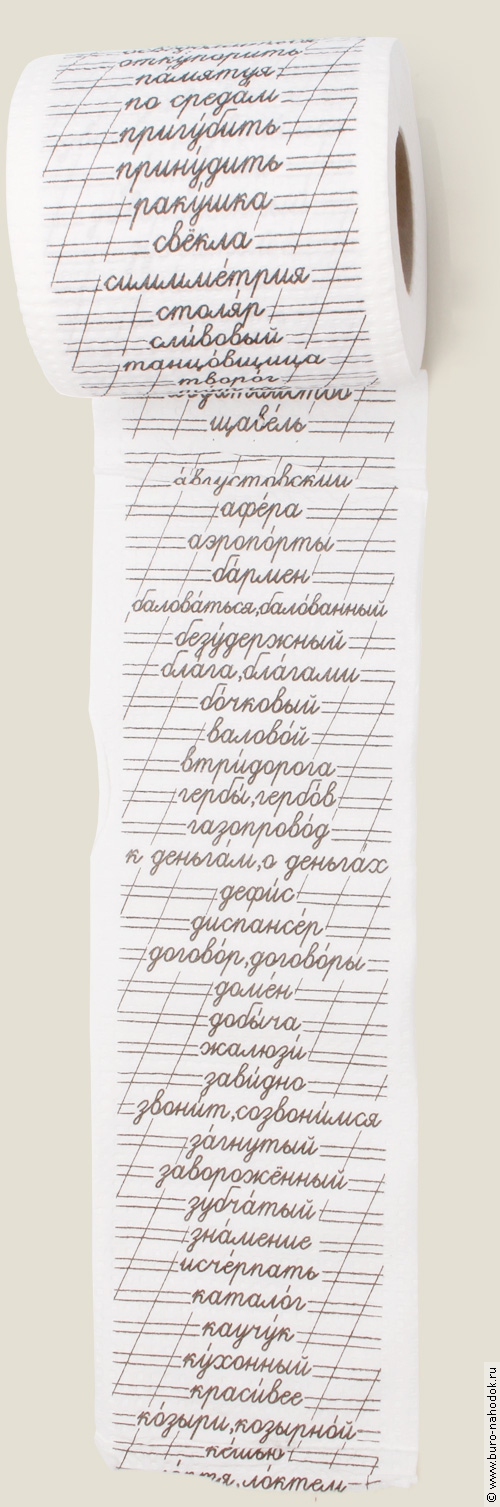 откупорить
па́мятуя
по среда́м
пригу́бить
прину́дить
раку́шка
свёкла
симме́трия
столя́р
сли́вовый
танцо́вщица
творог
щаве́ль
а́вгустовский
афе́ра
аэропо́рты
ба́рмен
балова́ться,бало́ванный
безу́держный
бла́га,бла́гами
бо́чковый
валово́й
втри́дорога
гербы́,гербо́в
газопрово́д
к деньга́м,о деньга́х
дефи́с
диспансе́р
догово́р,догово́ры
доме́н
добы́ча
жалюзи́
зави́дно
звони́т,созвони́мся
за́гнутый
заворожённый
зубча́тый
зна́мение
исче́рпать
катало́г
каучу́к
ку́хонный
краси́вее
ко́зыри,козырно́й
ке́шью
ло́ктем
© www.buro-nahodok.ru